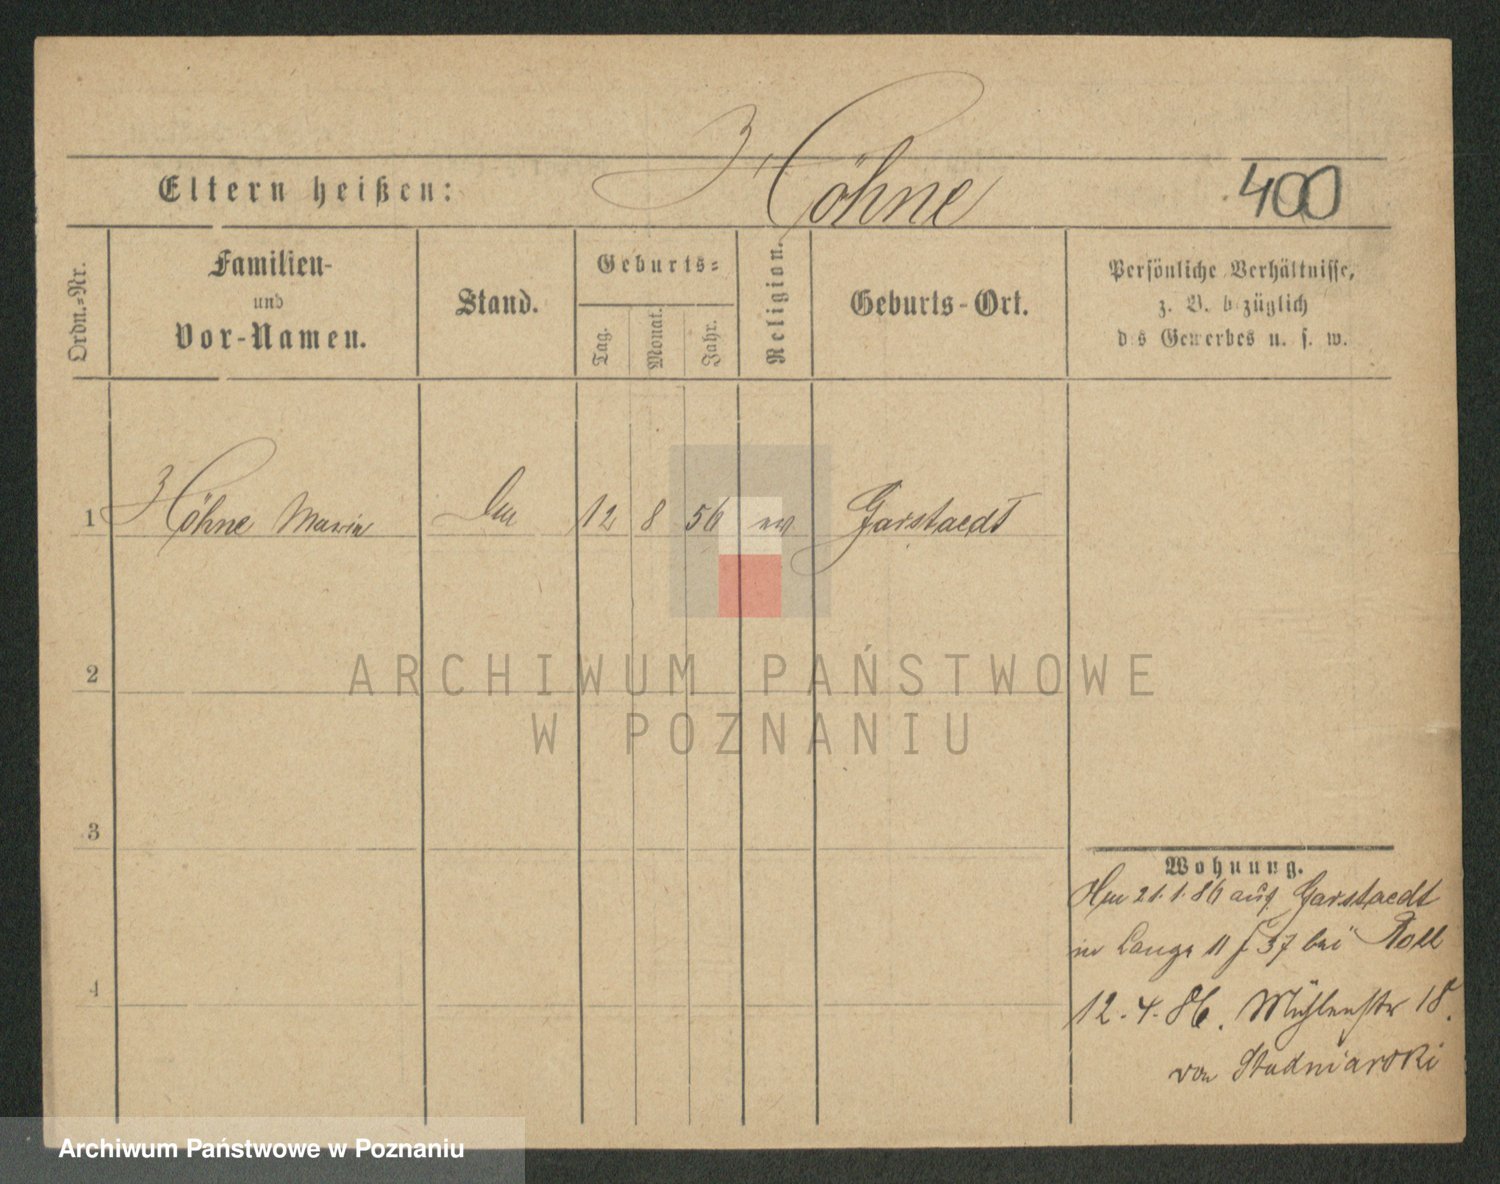 Höhne
400
Eltern heißen:
Ordn.-Nr.
Familien-
und
Vor-Namen.
Stand.
Geburts-
Tag.
Monat.
Jahr.
Religion.
Geburts-Ort.
Persönliche Verhältnisse,
z. B. bezüglich
des Gewerbes u. s. w.
1 Höhne Maria 12 8 56 ev Garstaedt
2
3
4
ARCHIWUM PAŃSTWOWE
W POZNANIU
Wohnung.
21.1.86 aus Garstaedt
in Lange 11 37 bei
12.4.86. Mühlenstr 18.
von
Archiwum Państwowe w Poznaniu